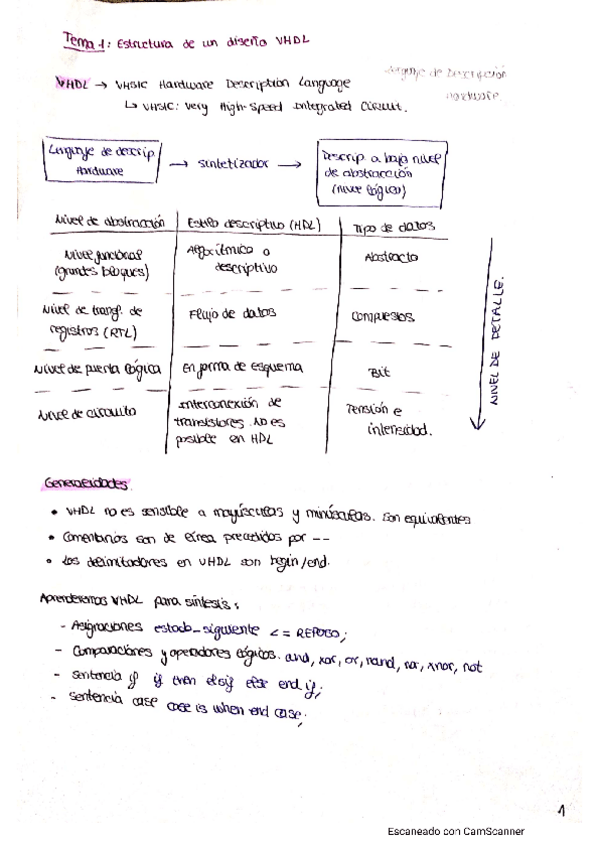 Tema 1: Estructura de un diseño VHDL
VHDL → VHSIC Hardware Description Language
↳ VHSIC: Very High-Speed Integrated Circuit.
Lenguaje de Descripción
Hardware.
Lenguaje de descrip.
Hardware
→ sintetizador →
Descrip. a bajo nivel
de abstracción
(nivel lógico)
Nivel de abstracción | Estilo descriptivo (HDL) | Tipo de datos
Nivel funcional
(grandes bloques)
Algorítmico o
descriptivo
Abstracto
Nivel de transf. de
registros (RTL)
Flujo de datos
Compuestos
Nivel de puerta lógica
En forma de esquema
Bit
Nivel de circuito
Interconexión de
transistores. No es
posible en HDL
Tensión e
intensidad.
NIVEL DE DETALLE.
Generalidades
• VHDL no es sensible a mayúsculas y minúsculas. Son equivalentes
• Comentarios son de línea precedidos por --
• Los delimitadores en VHDL son begin/end.
Aprenderemos VHDL para síntesis:
- Asignaciones estado_siguiente <= REPOSO;
- Comparaciones y operadores lógicos. and, xor, or, nand, nor, xnor, not
- Sentencia if if then elsif else end if;
- Sentencia case case is when end case;
1
Escaneado con CamScanner